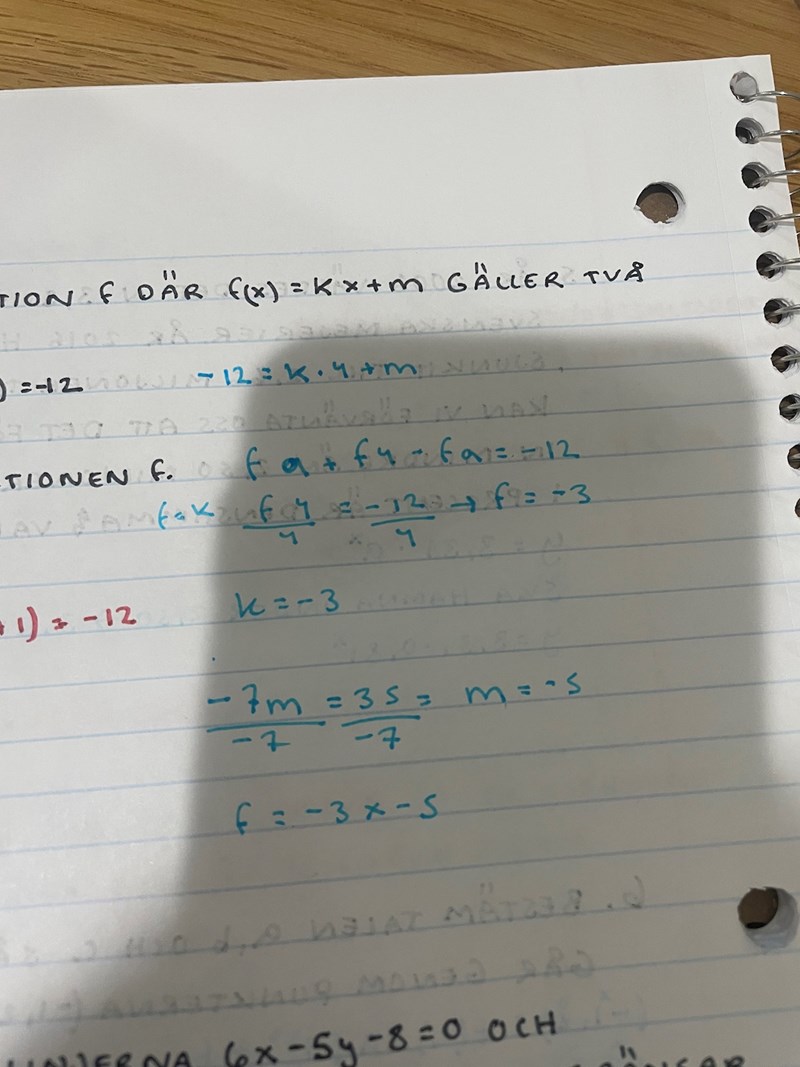 TION f DÄR f(x) = kx+m GÄLLER TVÅ
) = -12 -12 = k · 4 + m
TIONEN f. fa + f4 - fa = -12
f=k f4/4 = -12/4 → f = -3
+1) = -12 k = -3
-7m/-7 = 35/-7 = m = -5
f = -3x - 5
6x - 5y - 8 = 0 OCH